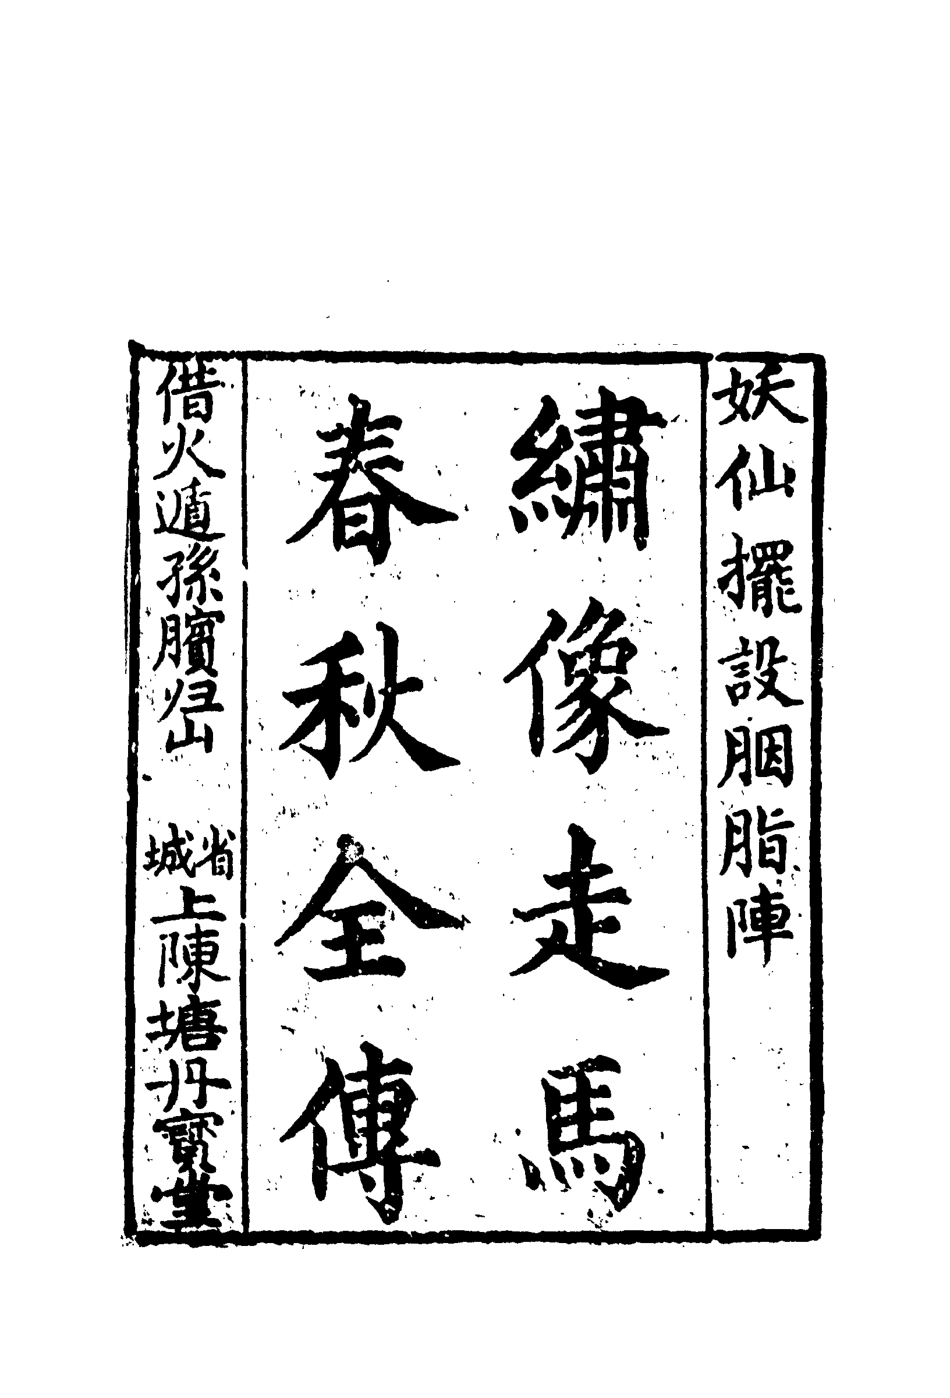 妖仙擺設胭脂陣
繡像走馬
春秋全傳
借火遁孫臏归山
省城上陳塘丹寳堂